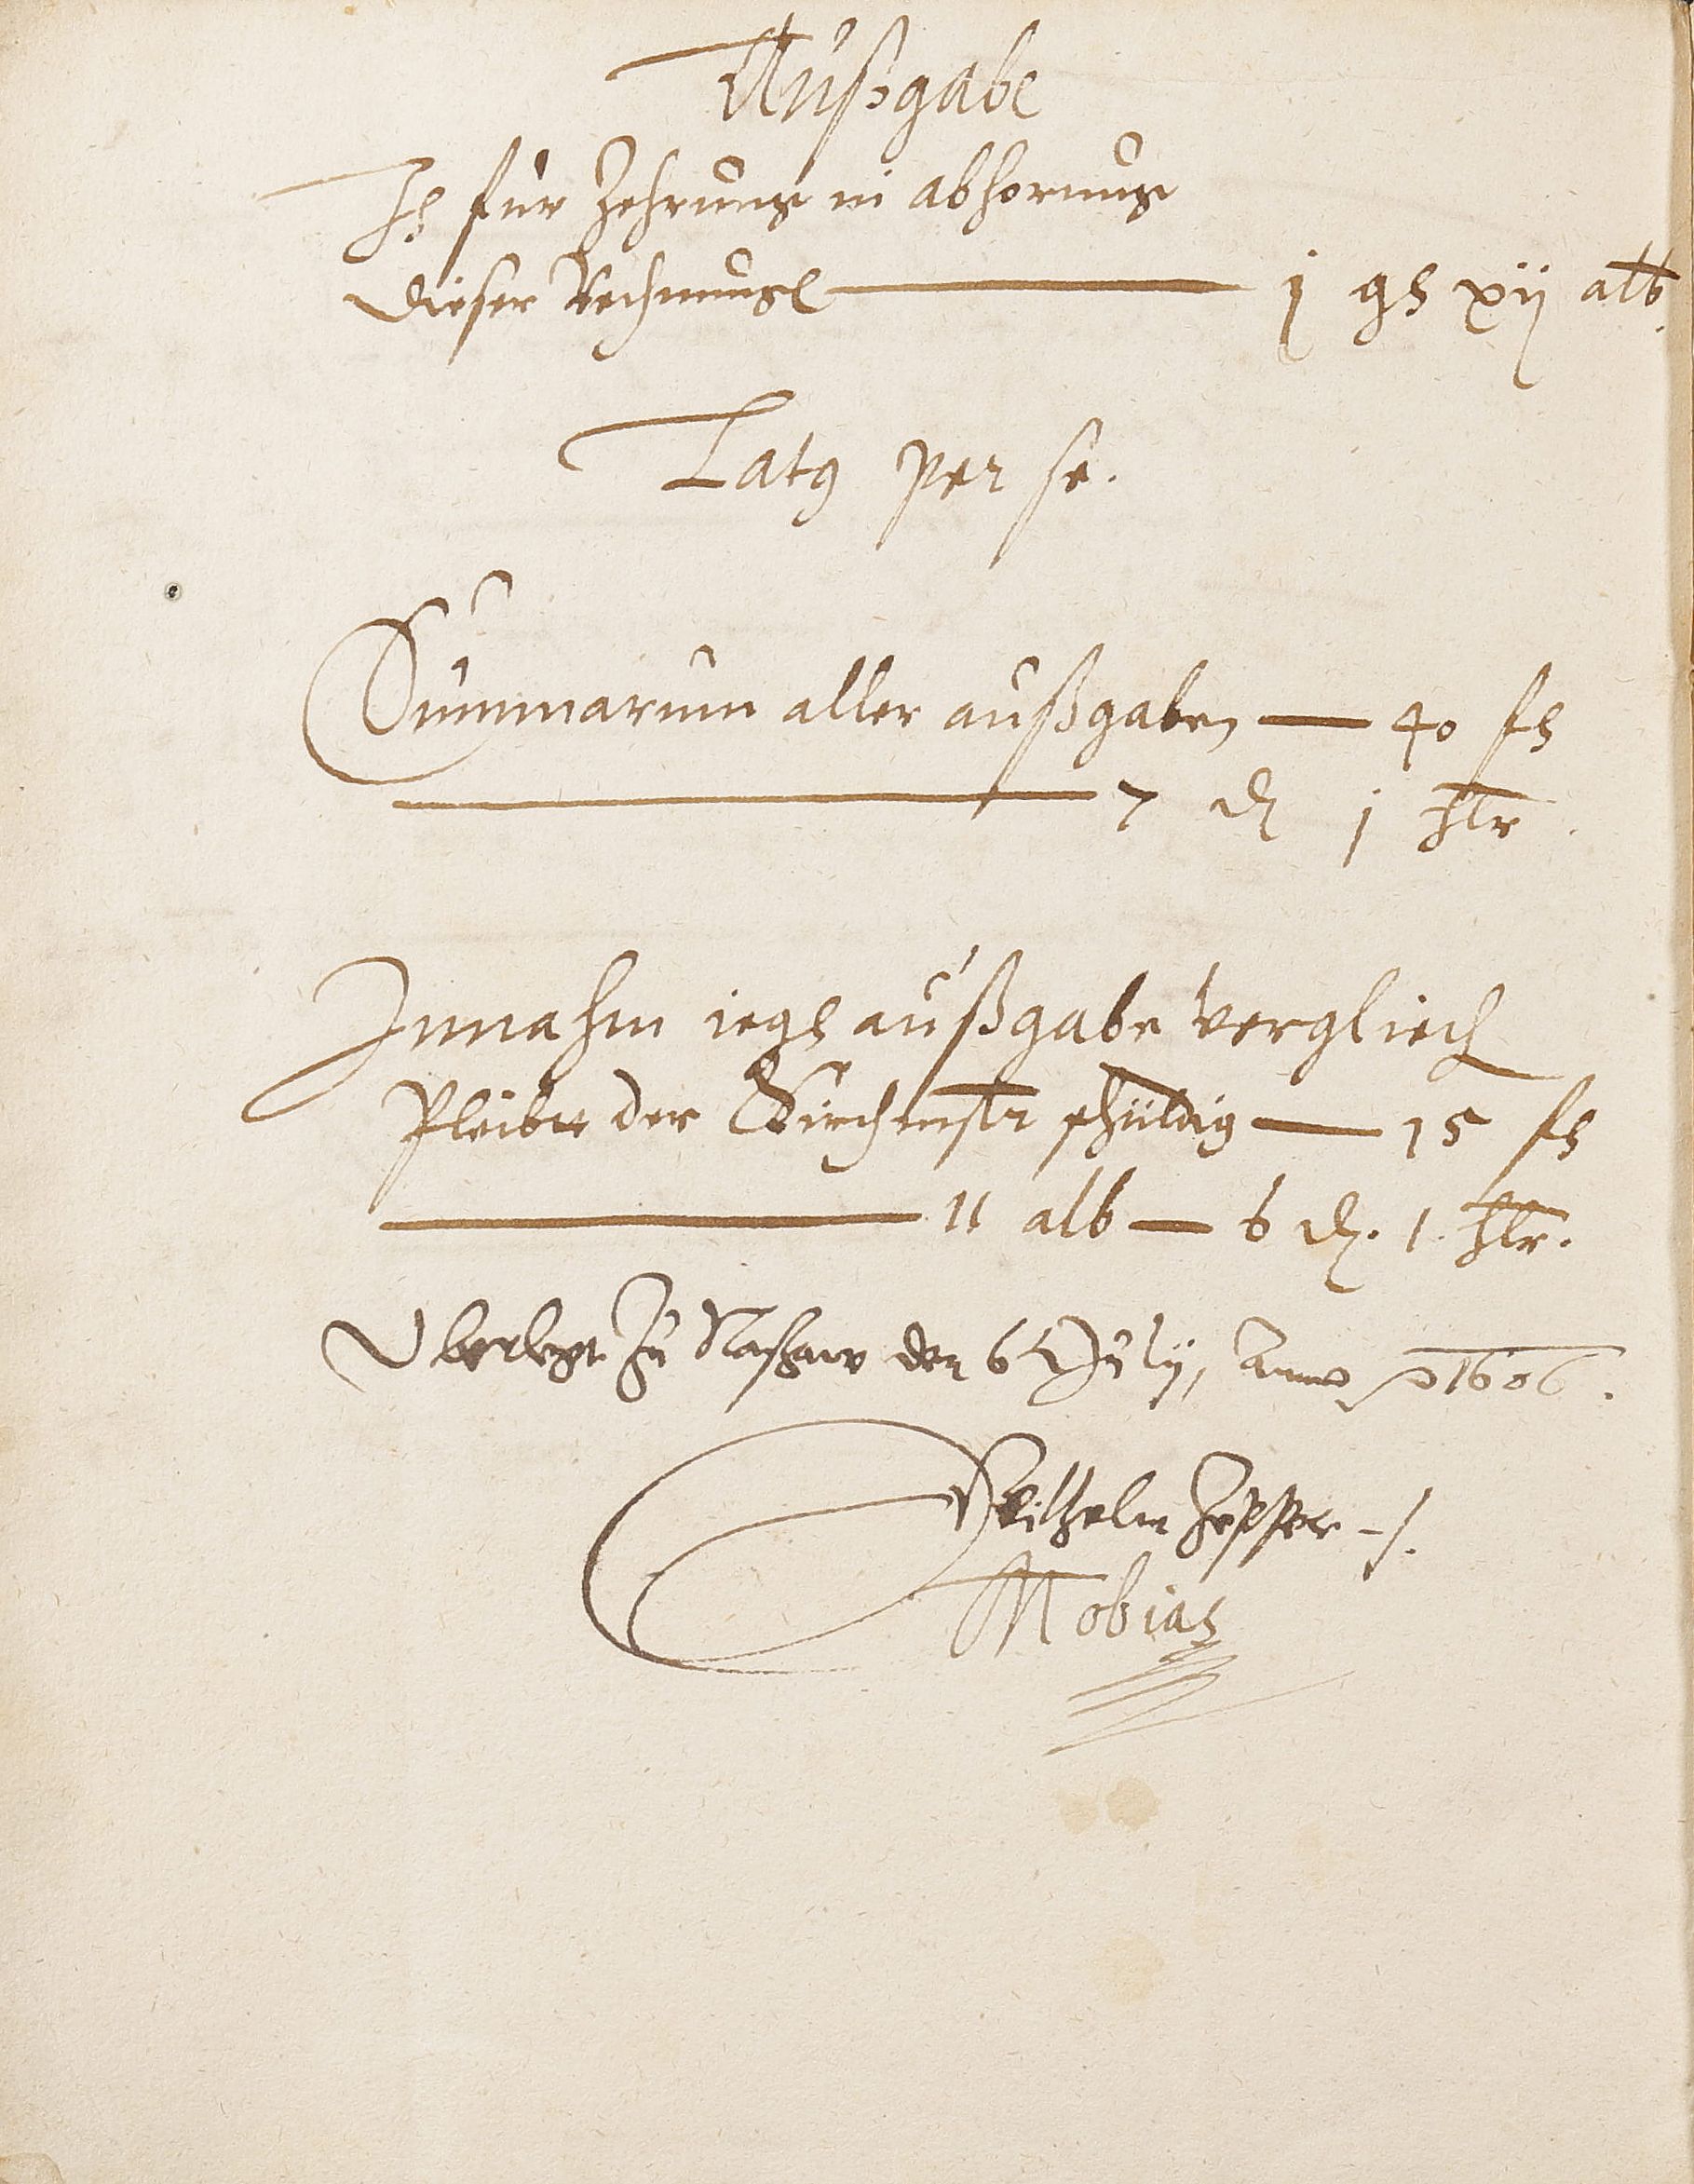 Außgabe
It für Zehrung in abhorung
dieser Rechnung j gl xij alb.
Latus per se.
Summarum aller außgaben 40 fl
7 d j hlr.
Innahm iegen außgabe vergliech
Pleibtt der Kirchmstr schuldig 15 fl
11 alb 6 d. 1. hlr.
Uberlegt zu Naßaw den 6 July, Anno 1606.
Wilhelm Zepper
Mobias